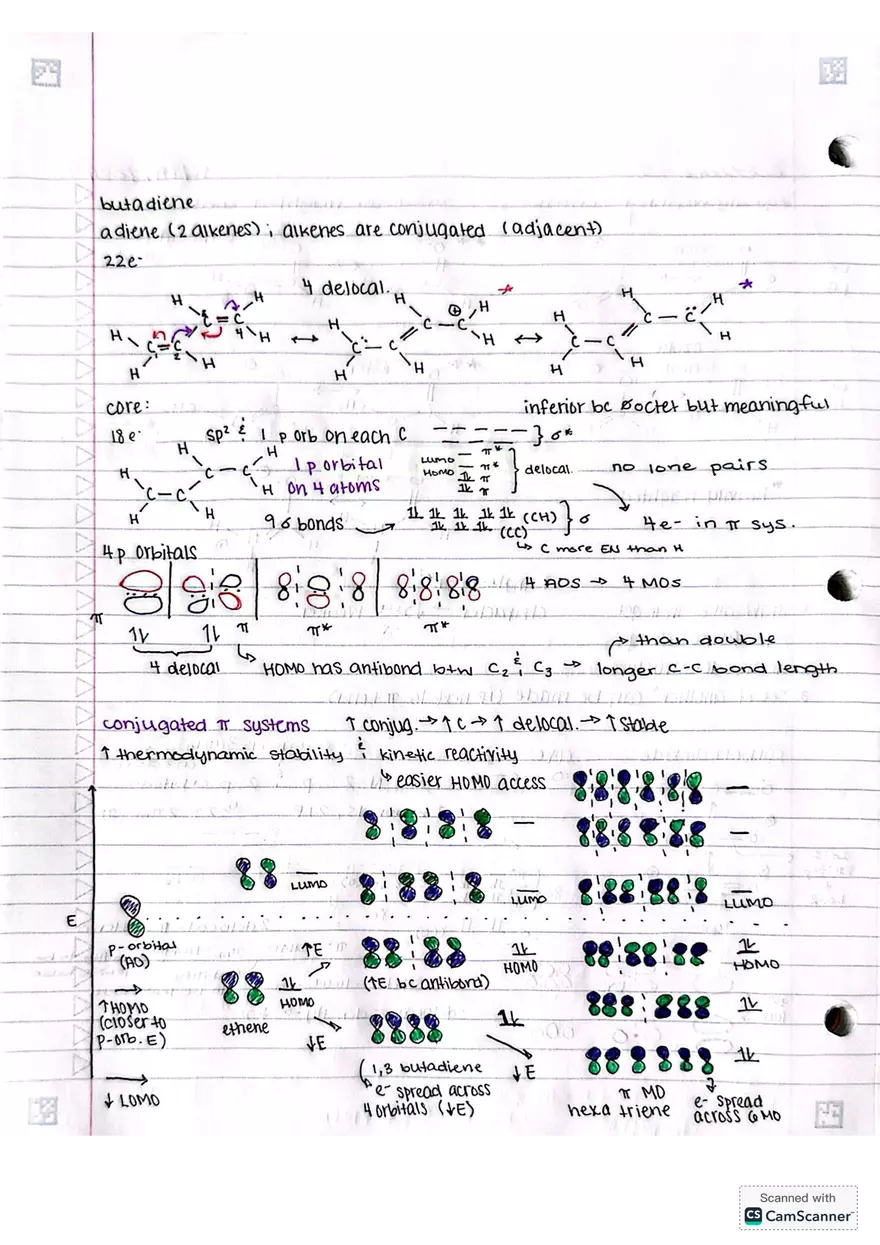 butadiene
a diene (2 alkenes); alkenes are conjugated (adjacent)
22e-
4 delocal.
H H C = C H H C = C H H 1 2 4
↔
H H C - C H C - C ⊕ H H *
↔
H H C - C H H C - C H H *
core:
inferior bc octet but meaningful
18 e-
sp² & 1 p orb on each C
} σ*
H H C - C H H C - C H H
1 p orbital
on 4 atoms
LUMO π*
HOMO π*
π
π
} delocal.
no lone pairs
9 σ bonds
(CH)
(CC)
} σ
4e- in π sys.
↳ C more EN than H
4 p orbitals
4 AOs → 4 MOs
π
π
π*
π*
4 delocal
↳ HOMO has antibond btw C₂ & C₃ → longer C-C bond length
↱ than double
conjugated π systems
↑ conjug. → ↑ C → ↑ delocal. → ↑ stable
↑ thermodynamic stability & kinetic reactivity
↳ easier HOMO access
E
p-orbital
(AO)
→
↑ HOMO
(closer to
p-orb. E)
→
↓ LOMO
LUMO
HOMO
ethene
↑E
↓E
LUMO
HOMO
(↑E bc antibond)
1,3 butadiene
e- spread across
4 orbitals (↓E)
↓E
LUMO
HOMO
π MO
hexa triene
e- spread
across 6 MO
Scanned with
CS CamScanner